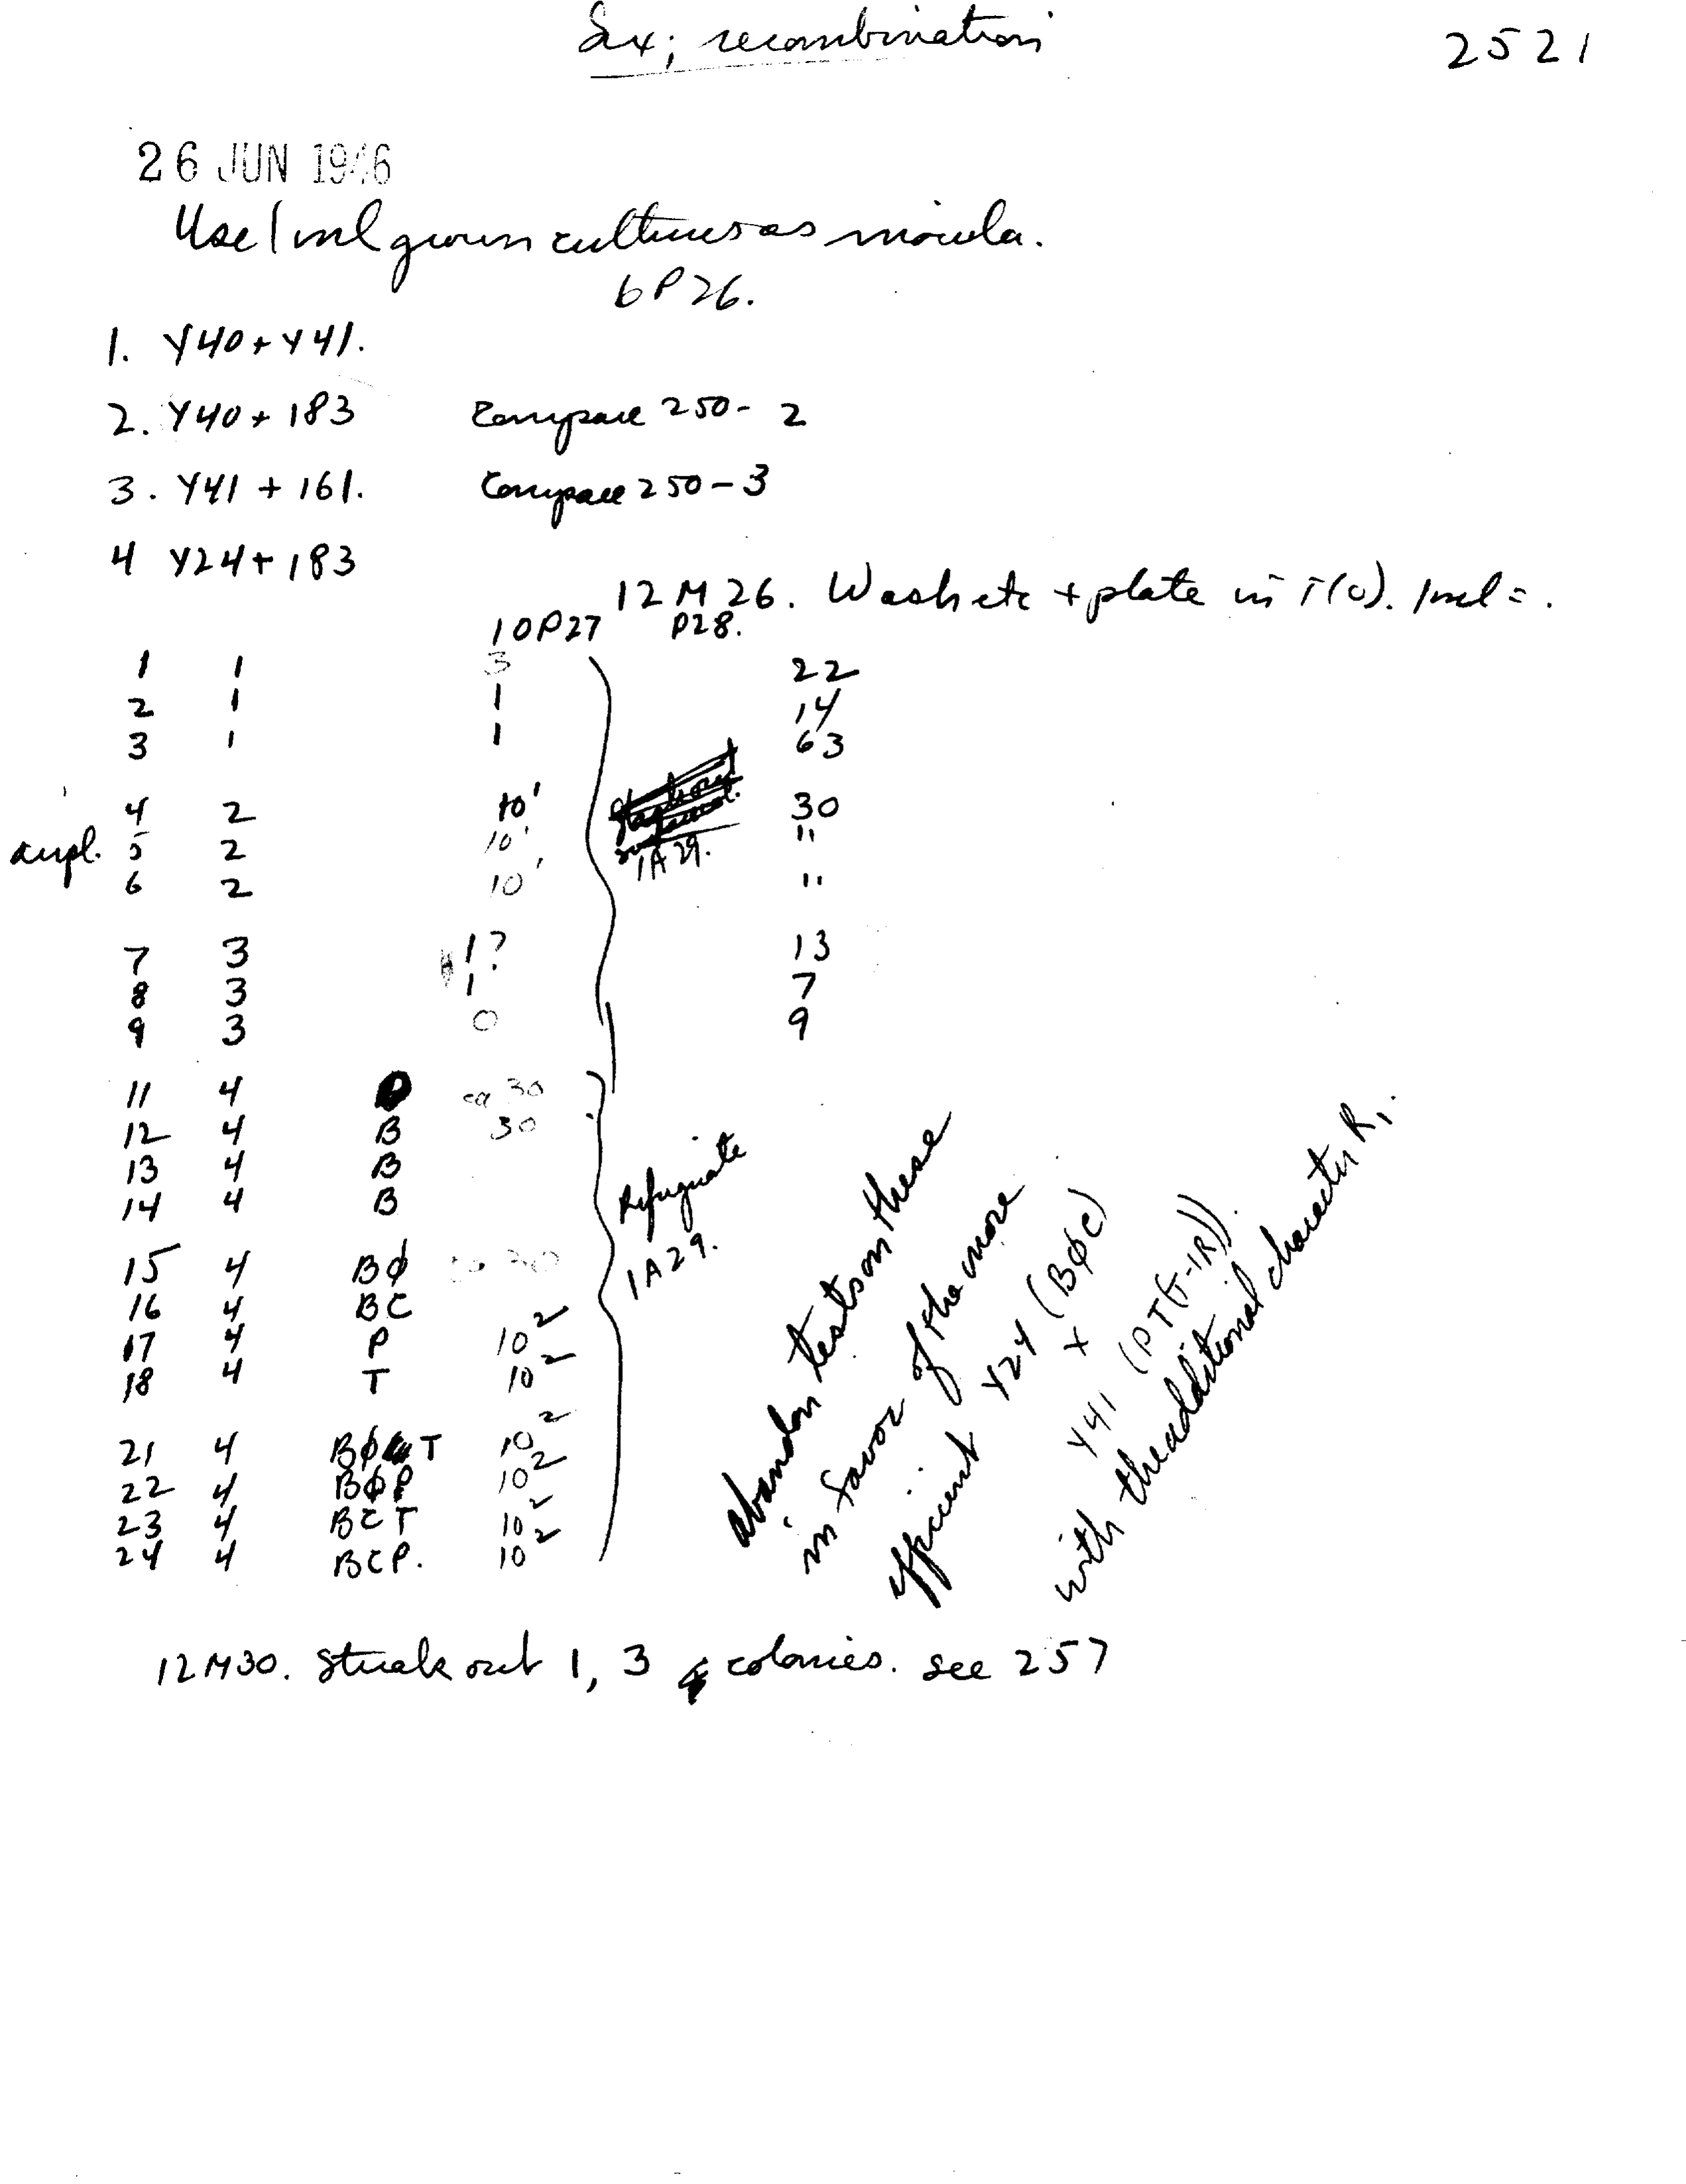 Sex; recombination 2521
26 JUN 1946
Use 1 ml grown cultures as inocula.
6P26.
1. Y40 + Y41.
2. Y40 + 183 Compare 250-2
3. Y41 + 161. Compare 250-3
4 Y24 + 183
12M26. Wash etc + plate in T(0). 1 ml = .
10P27 P28.
1 1 3 22
2 1 1 14
3 1 1 63
4 2 10' 30
ampl. 5 2 10' "
6 2 10' "
1A29.
7 3 1? 13
8 3 1 7
9 3 0 9
11 4 ca 30
12 4 B 30
13 4 B
14 4 B
Refrigerate
1A29.
15 4 Bϕ
16 4 BC
17 4 P 10²
18 4 T 10²
21 4 Bϕ T 10²
22 4 BϕP 10²
23 4 BCT 10²
24 4 BCP. 10²
abandon tests on these
in favor of the more
efficient Y24 (BϕC)
+
Y41 (PT(T-1R))
with the additional character R₁.
12M30. Streak out 1, 3 colonies. see 257